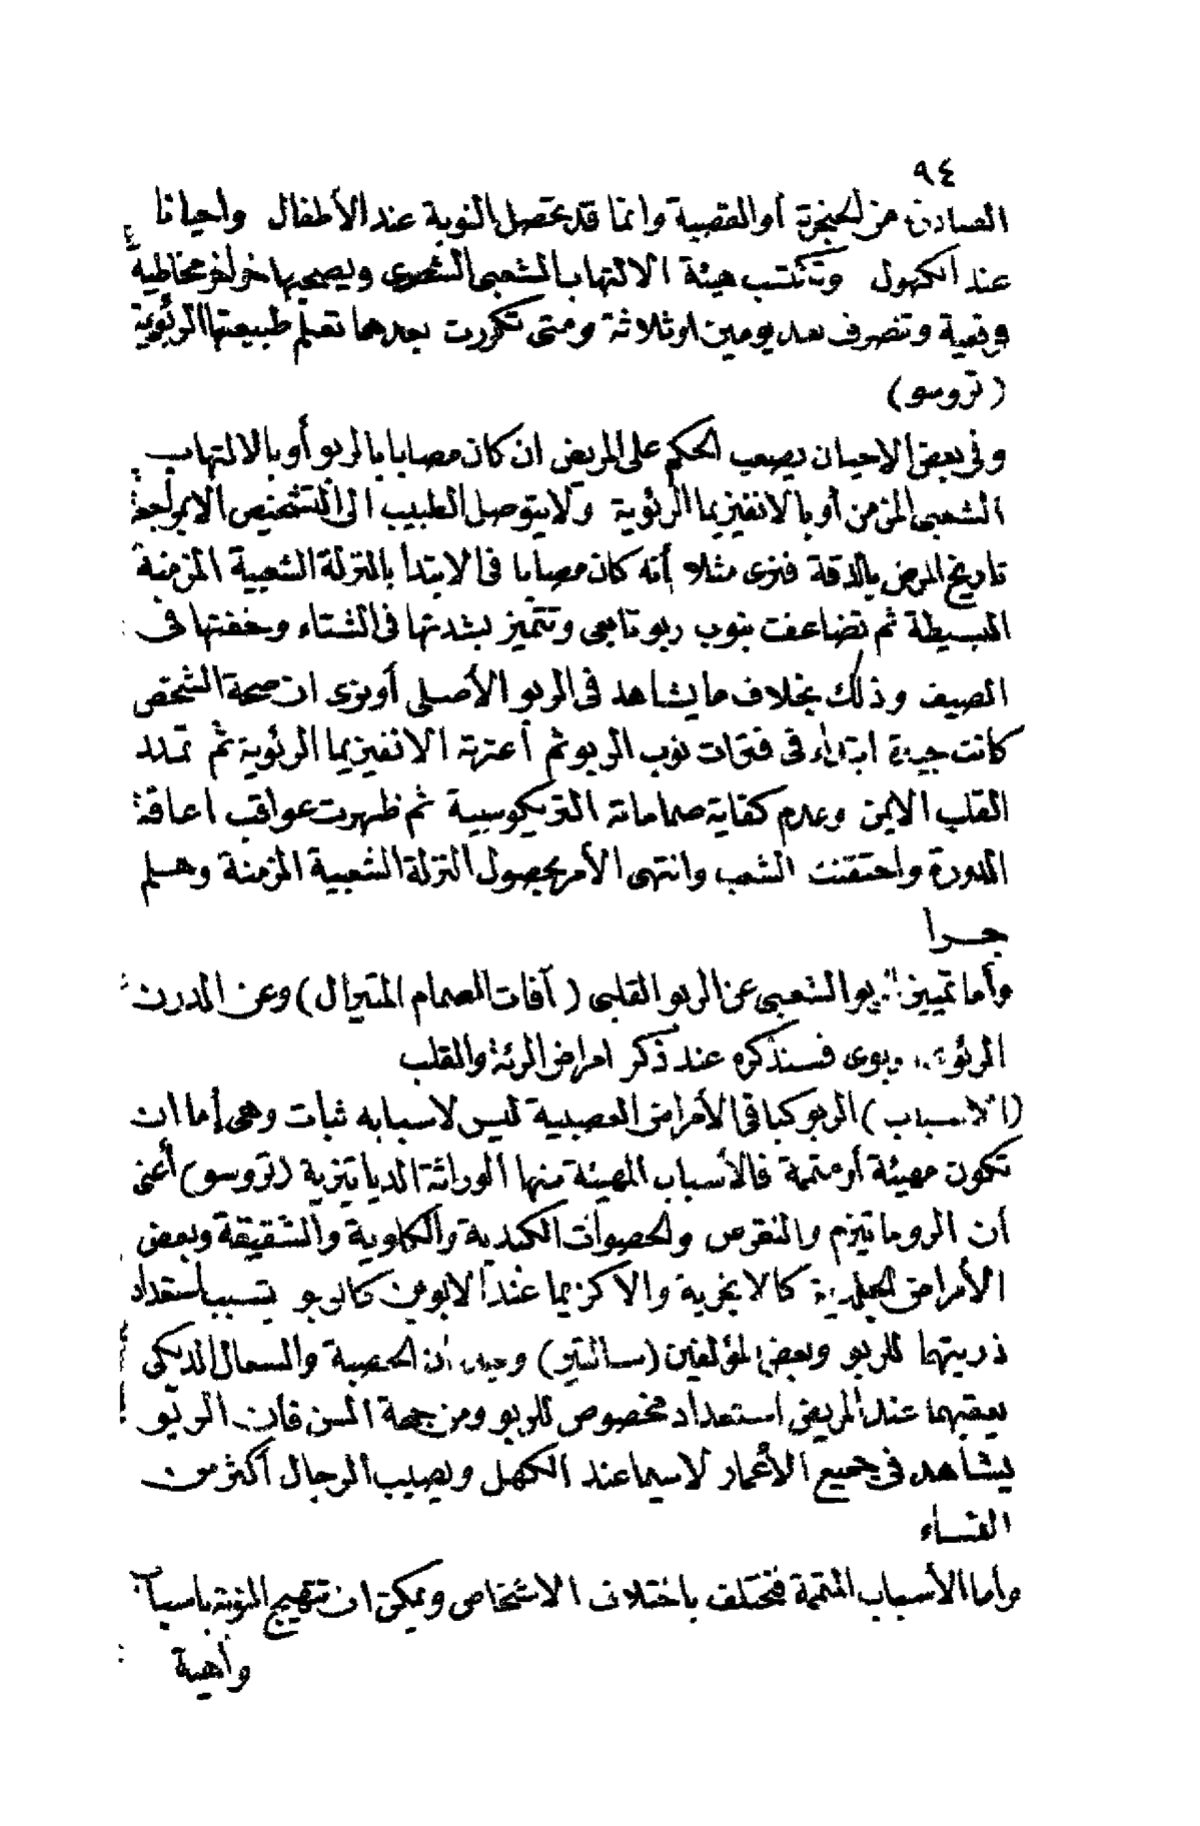 ٩٤
الصادر من الحنجرة أو القصبة وانما قد تحصل النوبة عند الأطفال واحيانا
عند الكهول وتكتسب هيئة الالتهاب الشعبى الشعرى ويصحبها خراخر مخاطية
وفقعية وتنصرف بعد يومين او ثلاثة ومتى تكررت بعدهما تعلم طبيعتها الربوية
(تروسو)
وفى بعض الاحيان يصعب الحكم على المريض ان كان مصابا بالربو أو بالالتهاب
الشعبى المزمن أو بالانفيزيما الرئوية ولا يتوصل الطبيب الى التشخيص الا بمراجعة
تاريخ المرض بالدقة فنرى مثلا أنه كان مصابا فى الابتدا بالنزلة الشعبية المزمنة
البسيطة ثم تضاعفت بنوب ربو تابعى وتتميز بشدتها فى الشتاء وخفتها فى
الصيف وذلك بخلاف ما يشاهد فى الربو الأصلى أو نرى ان صحة الشخص
كانت جيدة ابتداء فى فترات نوب الربو ثم أعترته الانفيزيما الرئوية ثم تمدد
القلب الايمن وعدم كفاية صماماته التريكوسبية ثم ظهرت عواقب اعاقة
الدورة واحتقنت الشعب وانتهى الأمر بحصول النزلة الشعبية المزمنة وهلم
جرا
وأما تمييز الربو الشعبى عن الربو القلبى (آفات الصمام المتيرال) وعن الدرن
الرئوى فسنذكره عند ذكر امراض الرئة والقلب
(الاسباب) الربو كباقى الأمراض العصبية ليس لاسبابه ثبات وهى إما ان
تكون مهيئة أو متممة فالأسباب المهيئة منها الوراثة الدياتيزية (تروسو) أعنى
أن الروماتيزم والنقرس والحصوات الكبدية والكلوية والشقيقة وبعض
الأمراض الجلدية كالانجرية والاكزيما عند الابوين كالربو يتسبب استعداد
ذريتهما للربو وبعض المؤلفين (سالتير) وجد ان الحصبة والسعال الديكى
يعقبهما عند المريض استعداد مخصوص للربو ومن جهة السن فان الربو
يشاهد فى جميع الأعمار لاسيما عند الكهل ويصيب الرجال أكثر من
النساء
واما الأسباب المتممة فتختلف باختلاف الاشخاص ويمكن ان تتهيج النوبة باسباب
واهية